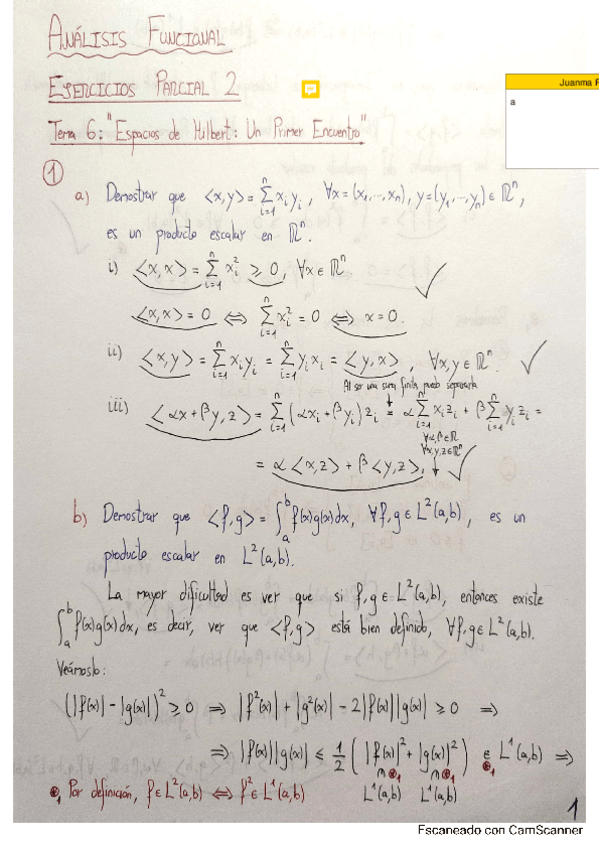 ANÁLISIS FUNCIONAL
EJERCICIOS PARCIAL 2
Juanma F
a
Tema 6: "Espacios de Hilbert: Un Primer Encuentro"
① a) Demostrar que <x,y> = ∑_{i=1}^{n} x_i y_i , ∀x = (x_1,...,x_n), y = (y_1,...,y_n) ∈ ℝ^n,
es un producto escalar en ℝ^n.
i) <x,x> = ∑_{i=1}^{n} x_i^2 ≥ 0, ∀x ∈ ℝ^n ✓
<x,x> = 0 ⇔ ∑_{i=1}^{n} x_i^2 = 0 ⇔ x = 0.
ii) <x,y> = ∑_{i=1}^{n} x_i y_i = ∑_{i=1}^{n} y_i x_i = <y,x> , ∀x,y ∈ ℝ^n. ✓
Al ser una suma finita puedo separarla
iii) <αx + βy, z> = ∑_{i=1}^{n} (αx_i + βy_i) z_i = α ∑_{i=1}^{n} x_i z_i + β ∑_{i=1}^{n} y_i z_i =
∀α,β∈ℝ
∀x,y,z∈ℝ^n
= α <x,z> + β <y,z>, ✓
b) Demostrar que <f,g> = ∫_a^b f(x)g(x)dx, ∀f,g ∈ L^2(a,b), es un
producto escalar en L^2(a,b).
La mayor dificultad es ver que si f,g ∈ L^2(a,b), entonces existe
∫_a^b f(x)g(x)dx, es decir, ver que <f,g> está bien definido, ∀f,g ∈ L^2(a,b).
Veámoslo:
(|f(x)| - |g(x)|)^2 ≥ 0 ⇒ |f^2(x)| + |g^2(x)| - 2|f(x)||g(x)| ≥ 0 ⇒
⇒ |f(x)||g(x)| ≤ 1/2 ( |f(x)|^2 + |g(x)|^2 ) ∈ L^1(a,b) ⇒
⊛_1 ⊛_1 ⊛_1
⊛_1 Por definición, f ∈ L^2(a,b) ⇔ f^2 ∈ L^1(a,b) L^1(a,b) L^1(a,b)
1
Escaneado con CamScanner